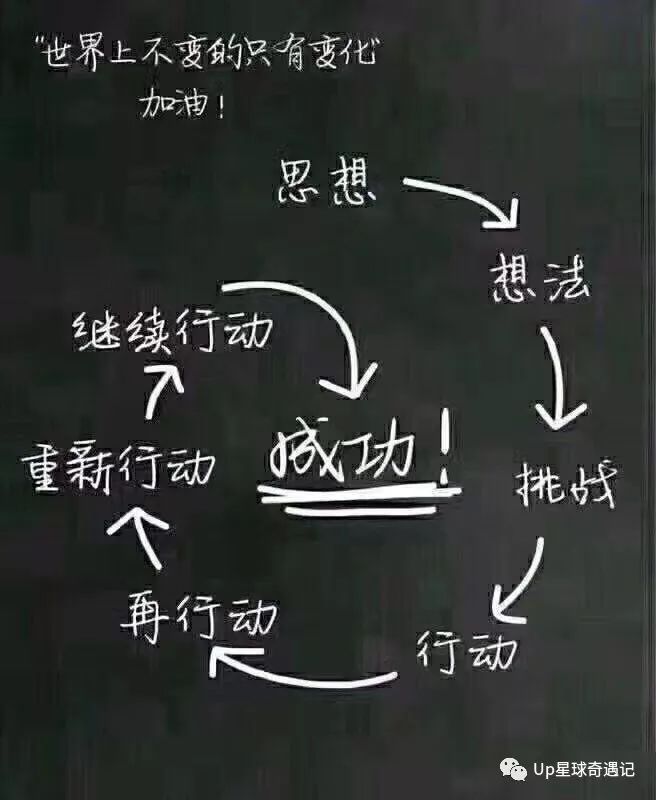 "世界上不变的只有变化"
加油!
思想
想法
挑战
行动
再行动
重新行动
继续行动
成功!
Up星球奇遇记